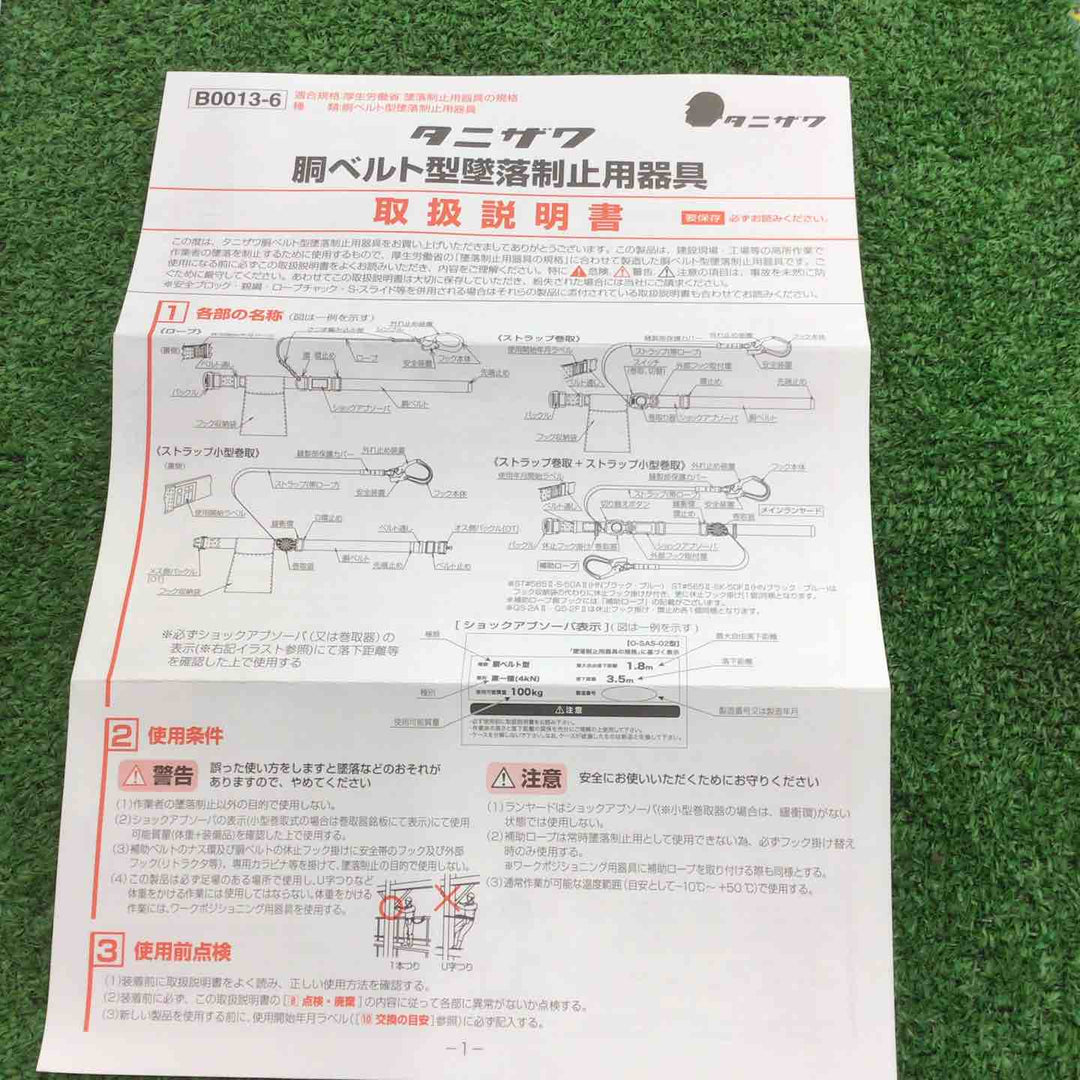 B0013-6
適合規格:厚生労働省 墜落制止用器具の規格
種　　類:胴ベルト型墜落制止用器具
タニザワ
タニザワ
胴ベルト型墜落制止用器具
取扱説明書
要保存 必ずお読みください。
この度は、タニザワ胴ベルト型墜落制止用器具をお買い上げいただきましてありがとうございます。この製品は、建設現場・工場等の高所作業で
作業者の墜落を制止するために使用するもので、厚生労働省の「墜落制止用器具の規格」に合わせて製造した胴ベルト型墜落制止用器具です。ご
使用になる前に必ずこの取扱説明書をよくお読みいただき、内容をご理解ください。特に⚠危険 ⚠警告 ⚠注意の項目は、事故を未然に防
ぐために厳守してください。あわせてこの取扱説明書は大切に保存していただき、紛失された場合には当社にご請求ください。
※安全ブロック・親綱・ロープチャック・S.スライド等を併用される場合はそれらの製品に添付されている取扱説明書も合わせてお読みください。
1 各部の名称 (図は一例を示す)
《ロープ》
(裏側)
外れ止め装置
ロープ
安全装置
フック本体
ベルト通し
環 環止め
先端止め
バックル
ショックアブソーバ
胴ベルト
フック収納袋
《ストラップ巻取》
使用開始年月ラベル
縫製部保護カバー
外れ止め装置
フック本体
ストラップ(帯ロープ)
スイッチ
(巻取、切替)
外部フック取付環
安全装置
ベルト通し
環止め
先端止め
バックル
巻取り器
ショックアブソーバ
胴ベルト
フック収納袋
《ストラップ小型巻取》
(裏側)
縫製部保護カバー
外れ止め装置
ストラップ(帯ロープ)
安全装置
フック本体
使用開始ラベル
緩衝環
D環止め
ベルト通し
オス側バックル(OT)
メス側バックル
(OT)
巻取器
胴ベルト
先端止め
ベルト止め
フック収納袋
《ストラップ巻取＋ストラップ小型巻取》
使用年月開始ラベル
外れ止め装置
フック本体
縫製部保護カバー
ストラップ(帯ロープ)
ベルト通し
切り替えボタン
緩衝環
環止め
安全装置
巻取器
メインランヤード
バックル
休止フック掛け
巻取器
ショックアブソーバ
外部フック取付環
補助ロープ
※ST#565Ⅱ-S-50AⅡ(HNブラック・ブルー) ST#565Ⅱ-SK-50FⅡ(HNブラック・ブルー)は
フック収納袋の代わりに休止フック掛けが付き、更に休止フック掛け1個同様となります。
※補助ロープ側フックには「補助ロープ」の記載がございます。
※GS-2AⅡ・GS-2FⅡは休止フック掛・環止め各1個同様となります。
※必ずショックアブソーバ(又は巻取器)の
表示(※右記イラスト参照)にて落下距離等
を確認した上で使用する
[ショックアブソーバ表示](図は一例を示す)
種類
最大自由落下距離
[O-SAS-02型]
「墜落制止用器具の規格」に基づく表示
種類 胴ベルト型
最大自由落下距離 1.8m
落下距離
種別 第一種(4kN)
落下距離 3.5m
種別
使用可能質量 100kg
製造番号
⚠注意
使用可能質量
製造番号又は製造年月
・必ず使用前に取扱説明書をお読み下さい。
2 使用条件
⚠警告 誤った使い方をしますと墜落などのおそれが
ありますので、やめてください
(1)作業者の墜落制止以外の目的で使用しない。
(2)ショックアブソーバの表示(小型巻取式の場合は巻取器銘板にて表示)にて使用
可能質量(体重+装備品)を確認した上で使用する。
(3)補助ベルトのナス環及び胴ベルトの休止フック掛けに安全帯のフック及び外部
フック(リトラクタ等)、専用カラビナ等を掛けて、墜落制止の目的で使用しない。
(4)この製品は必ず足場のある場所で使用し、U字つりなど
体重をかける作業には使用してはならない。体重をかける
作業には、ワークポジショニング用器具を使用する。
1本つり
U字つり
⚠注意 安全にお使いいただくためにお守りください
(1)ランヤードはショックアブソーバ(※小型巻取器の場合は、緩衝環)がない
状態では使用しない。
(2)補助ロープは常時墜落制止用として使用できない為、必ずフック掛け替え
時のみ使用する。
※ワークポジショニング用器具に補助ロープを取り付ける際も同様とする。
(3)通常作業が可能な温度範囲(目安として−10℃〜 +50℃)で使用する。
3 使用前点検
(1)装着前に取扱説明書をよく読み、正しい使用方法を確認する。
(2)装着前に必ず、この取扱説明書の[8 点検・廃棄]の内容に従って各部に異常がないか点検する。
(3)新しい製品を使用する前に、使用開始年月ラベル([10 交換の目安]参照)に必ず記入する。
−1−